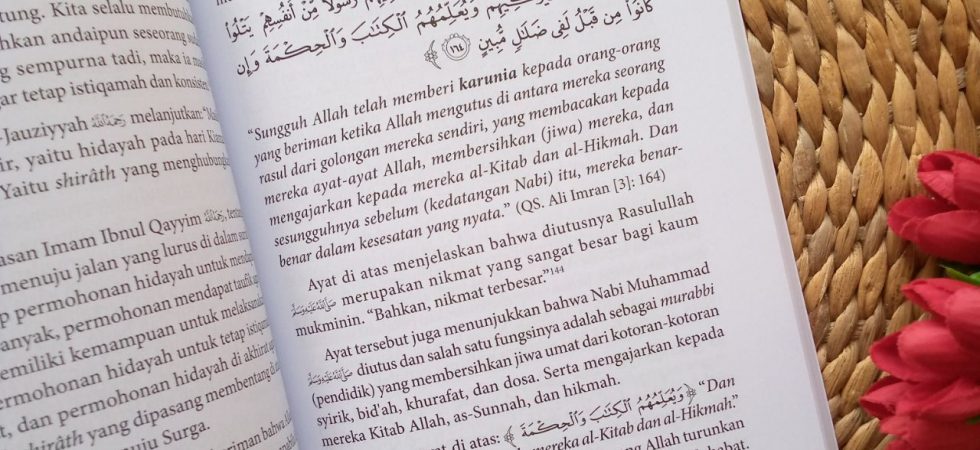 tung. Kita selalu membutuhkan
hkan andaipun seseorang sudah
g sempurna tadi, maka ia
gar tetap istiqamah dan konsisten
-Jauziyyah melanjutkan:
ir, yaitu hidayah pada hari
Yaitu shirâth yang menghubungkan
asan Imam Ibnul Qayyim
menuju jalan yang lurus di dalam
p permohonan hidayah untuk
anyak, permohonan mendapat taufik
emiliki kemampuan untuk melaksanakan
ermohonan hidayah untuk tetap
t, dan permohonan hidayah di akhirat
hirâth yang dipasang membentang di
nuju Surga.
riman bahwa
رَسُولًا مِّنْ أَنْفُسِهِمْ يَتْلُوْا
وَيُعَلِّمُهُمُ الْكِتَابَ وَالْحِكْمَةَ وَإِن
كَانُوْا مِن قَبْلُ لَفِى ضَلَالٍ مُّبِينٍ ١٦٤
“Sungguh Allah telah memberi karunia kepada orang-orang
yang beriman ketika Allah mengutus di antara mereka seorang
rasul dari golongan mereka sendiri, yang membacakan kepada
mereka ayat-ayat Allah, membersihkan (jiwa) mereka, dan
mengajarkan kepada mereka al-Kitab dan al-Hikmah. Dan
sesungguhnya sebelum (kedatangan Nabi) itu, mereka benar-
benar dalam kesesatan yang nyata.” (QS. Ali Imran [3]: 164)
Ayat di atas menjelaskan bahwa diutusnya Rasulullah
ﷺ merupakan nikmat yang sangat besar bagi kaum
mukminin. “Bahkan, nikmat terbesar.”144
Ayat tersebut juga menunjukkan bahwa Nabi Muhammad
ﷺ diutus dan salah satu fungsinya adalah sebagai murabbi
(pendidik) yang membersihkan jiwa umat dari kotoran-kotoran
syirik, bid'ah, khurafat, dan dosa. Serta mengajarkan kepada
mereka Kitab Allah, as-Sunnah, dan hikmah.
at di atas: ﴿وَيُعَلِّمُهُمُ الْكِتَابَ وَالْحِكْمَةَ﴾ “Dan
mereka al-Kitab dan al-Hikmah.”
ng Allah turunkan